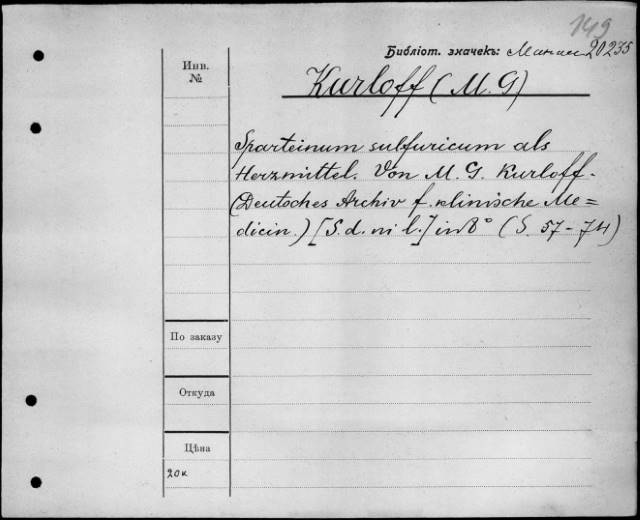 149
Библіот. значекъ: Манас 20235
Инв. №
Kurloff (M. G)
Sparteinum sulfuricum als
Herzmittel. Von M. G. Kurloff.
(Deutsches Archiv f. klinische Me=
dicin.) [S. d. ni l.] in 8° (S. 57-74)
По заказу
Откуда
Цѣна
20к